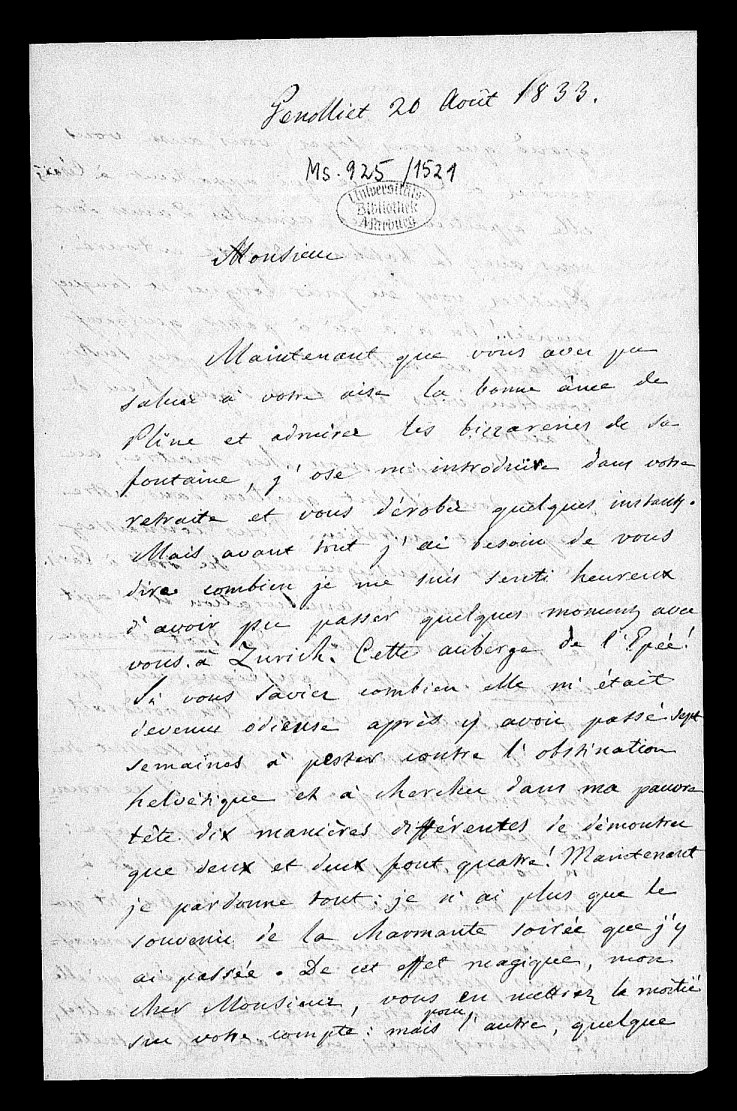 Genolliet 20 Août 1833.
Ms. 925 /1521
Universitäts-
Bibliothek
Marburg
Monsieur
Maintenant que vous avez pu
saluer à votre aise la bonne âme de
Pline et admirer les bizzareries de sa
fontaine, j'ose m'introduire dans votre
retraite et vous dérober quelques instants.
Mais avant tout j'ai besoin de vous
dire combien je me suis senti heureux
d'avoir pu passer quelques moments avec
vous à Zurich. Cette auberge de l'Epée!
Si vous saviez combien elle m'était
devenue odieuse après y avoir passé sept
semaines à pester contre l'obstination
helvétique et à chercher dans ma pauvre
tête dix manières différentes de démontrer
que deux et deux font quatre! Maintenant
je pardonne tout: je n'ai plus que le
souvenir de la charmante soirée que j'y
ai passée. De cet effet magique, mon
cher Monsieur, vous en mettrez la moitié
sur votre compte: mais pour l'autre, quelque